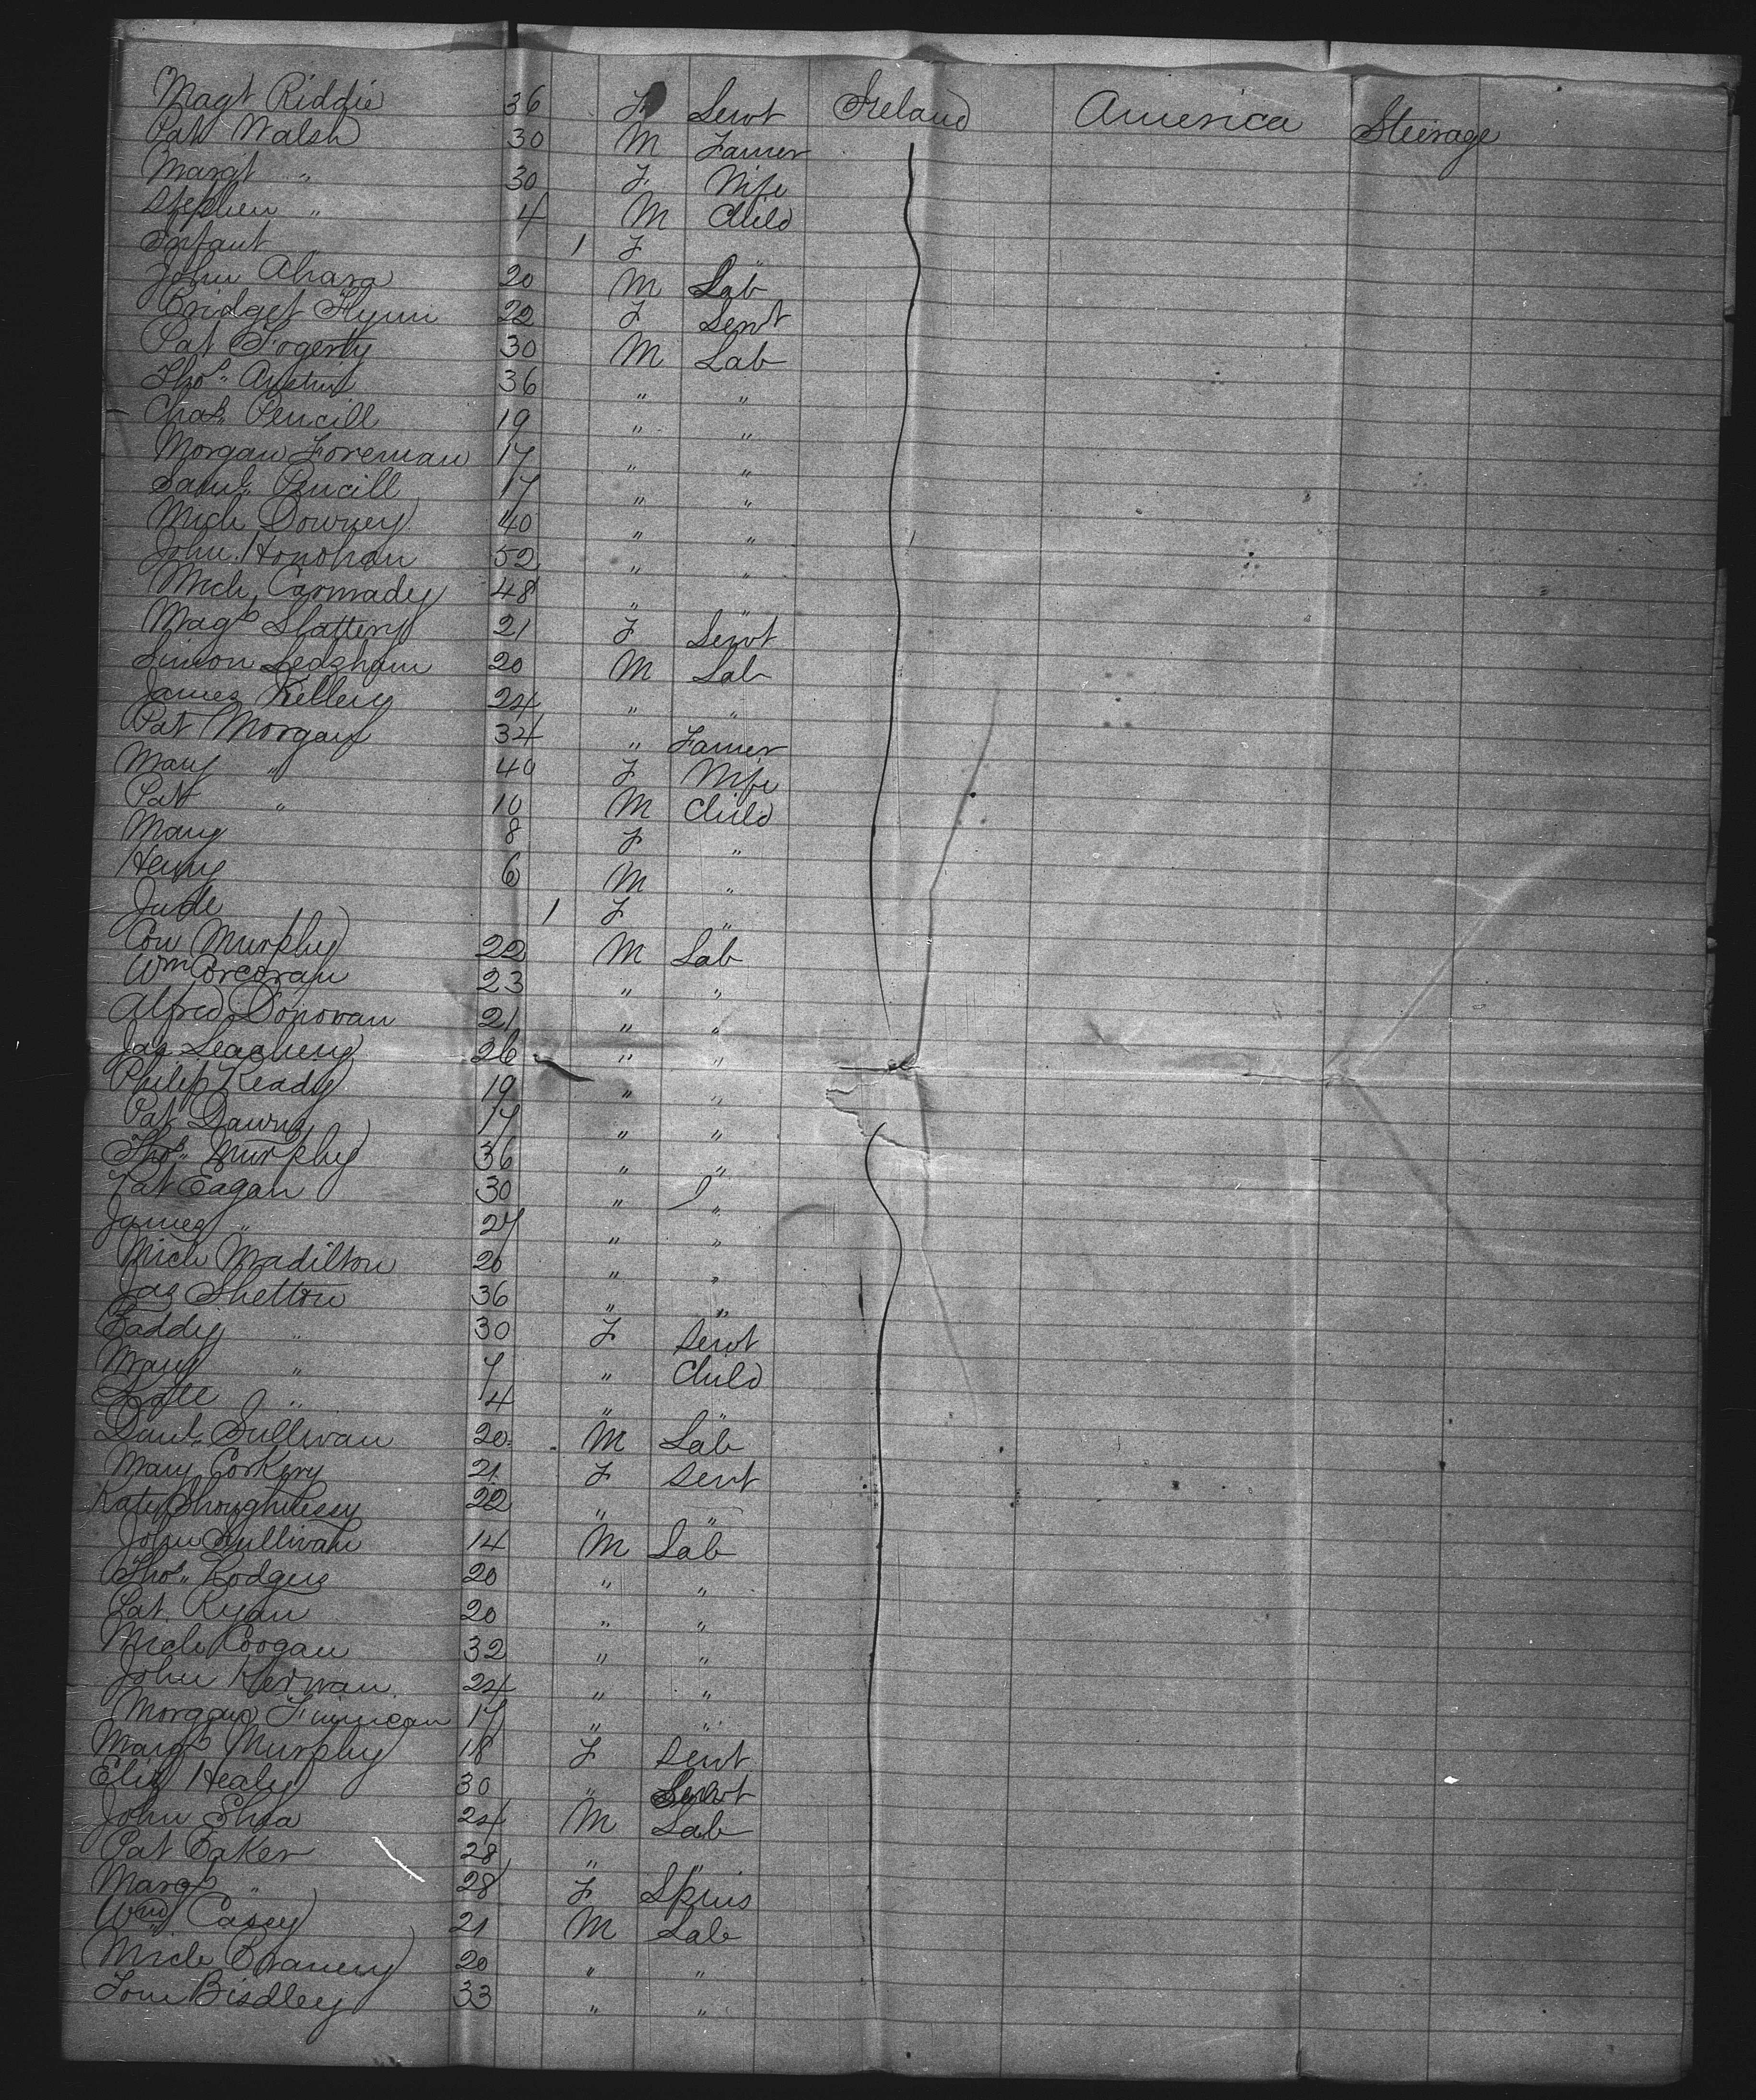 Magt Riddie 36 F Servt Ireland America Steerage
Pat Walsh 30 M Farmer
Margt " 30 F Wife
Stephen " 4 M Child
Infant " 1 F "
John Ahara 20 M Lab
Bridget Flynn 22 F Servt
Pat Fogerty 30 M Lab
Thos. Austin 36 " "
Chas. Pencill 19 " "
Morgan Foreman 17 " "
Saml. Pencill 17 " "
Mich Downey 40 " "
John Honohan 52 " "
Mich Carmady 48 " "
Magt Slattery 21 F Servt
Simon Ledgham 20 M Lab
James Kelley 24 " "
Pat Morgan 34 " Farmer
Mary " 40 F Wife
Pat " 10 M Child
Mary 8 F "
Henry 6 M "
Jude 1 F "
Con Murphy 22 M Lab
Wm Corcoran 23 " "
Alfred Donovan 21 " "
Jas 26 " "
Philip Keady 19 " "
Pat 17 " "
Thos. Murphy 36 " "
Pat Eagan 30 " "
James " 27 " "
Mich Madilton 20 " "
Jas Shelton 36 " "
30 F Servt
Mary " 7 " Child
Kate " 4 " "
Danl. Sullivan 20 M Lab
Mary Corkery 21 F Servt
Kate Shoughnessy 22 " "
John Sullivan 14 M Lab
Thos. Rodgers 20 " "
Pat Ryan 20 " "
Mich Coogan 32 " "
John Kerwan 24 " "
Morgan Finnican 17 " "
Margt Murphy 18 F Servt
Eliz Healy 30 " Servt
John Shea 24 M Lab
Pat Baker 28 " "
Margt " 28 F Spins
Wm Casey 21 M Lab
Mich Braneny 20 " "
Tom Bisdley 33 " "